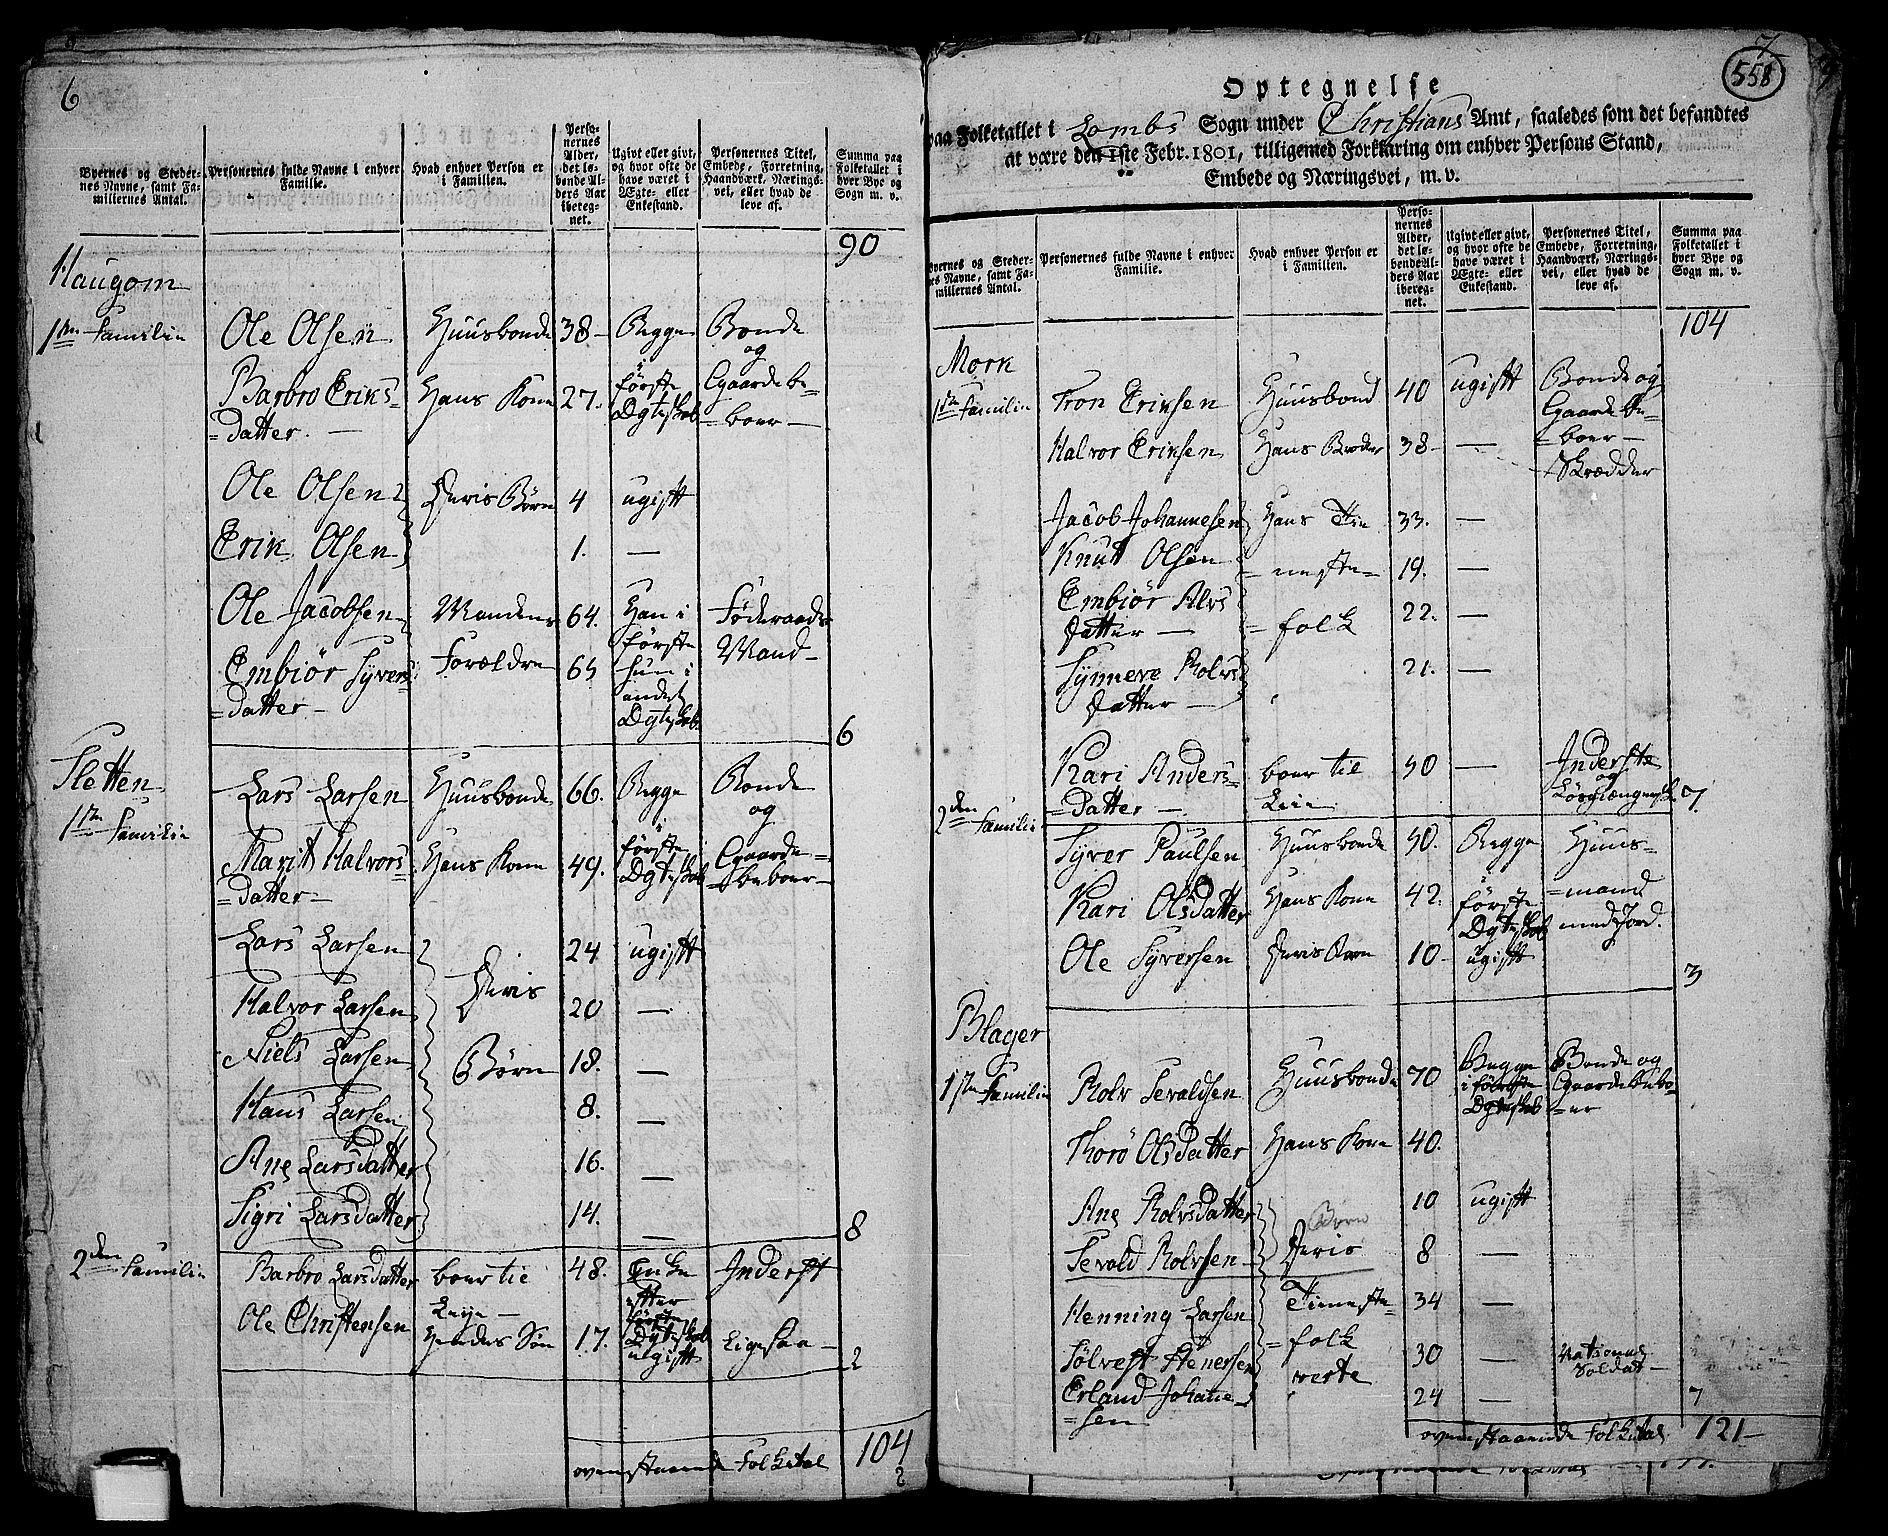 6
Byernes og Stedernes Navne, samt Familiernes Antal.
Personernes fulde Navne i enhver Familie.
Hvad enhver Person er i Familien.
Personernes Alder, det løbende Alders Aar iberegnet.
Ugivt eller givt, og hvor ofte de have været i Ægte- eller Enkestand.
Personernes Titel, Embede, Forretning, Haandværk, Næringsvei, eller hvad de leve af.
Summa paa Folketallet i hver Bye og Sogn m. v.
90
Haugom
1ste Familie
Ole Olsen Huusbonde 38 Begge Bonde
Barbro Eriks= Hans Kone 27. i første og Gaardebe=
=datter. — Ægteskab =boer —
Ole Olsen Deris Børn 4 ugift
Erik Olsen 1. —
Ole Jacobsen Mandens 64. Han i Føderaads
første
Embiør Syvers= Forældre 65 hun i Mand —
=datter — andet
Ægteskab
6
Sletten
1ste Familie
Lars Larsen Huusbonde 66. Begge Bonde
og
Marit Halvors= Hans Kone 49. i første Gaarde=
=datter — Ægteskab =beboer —
Lars Larsen 24 ugift
Halvor Larsen Deris 20 —
Niels Larsen Børn 18. —
Hans Larsen 8. —
Ane Larsdatter 16. —
Sigri Larsdatter 14. —
8
2den Familie
Barbro Larsdatter boer til 48. Enke Inderst
Leye — efter første
Ole Christensen Hendes Søn 17. Ægteskab Ligesaa —
ugift
2
ovenstaaende Folketal 104
7
558
Optegnelse
paa Folketallet i Lombs Sogn under Christians Amt, saaledes som det befandtes
at være den 1ste Febr. 1801, tilligemed Forklaring om enhver Persons Stand,
Embede og Næringsvei, m. v.
Byernes og Stedernes Navne, samt Familiernes Antal.
Personernes fulde Navne i enhver Familie.
Hvad enhver Person er i Familien.
Personernes Alder, det løbende Alders Aar iberegnet.
Ugivt eller givt, og hvor ofte de have været i Ægte- eller Enkestand.
Personernes Titel, Embede, Forretning, Haandværk, Næringsvei, eller hvad de leve af.
Summa paa Folketallet i hver Bye og Sogn m. v.
104
Mork
1ste Familie
Tron Eriksen Huusbond 40 ugift Bonde og
Gaardebe=
Halvor Eriksen Hans Broder 38 — =boer —
Skrædder
Jacob Johannesen Hans Tie 33. —
Knut Olsen =neste= 19. —
Embiør Alvs =folk 22. —
datter —
Synneve Rolvs 21. —
datter —
Kari Anders= boer til 50 — Inderste
=datter — Leie og
7
2den Familie
Syver Paulsen Huusbonde 50. Begge Huus=
Kari Olsdatter Hans Kone 42. i første =mand
Ægteskab med Jord.
Ole Syversen Deris Børn 10 ugift
3
Blager
1ste Familie
Rolv Tevaldsen Huusbonde 70 Begge Bonde og
i første Gaardebebo=
Ægteskab =er
Thorö Olsdatter Hans Kone 40.
Ane Rolvsdatter Børn 10 ugift
Tevald Rolvsen Deris 8 —
Henning Larsen Tieneste 34 —
=folk
Sølvest Stenersen 30 — National
Soldat —
Erland Johane= 24 —
=sen
7
ovenstaaende Folketal 121